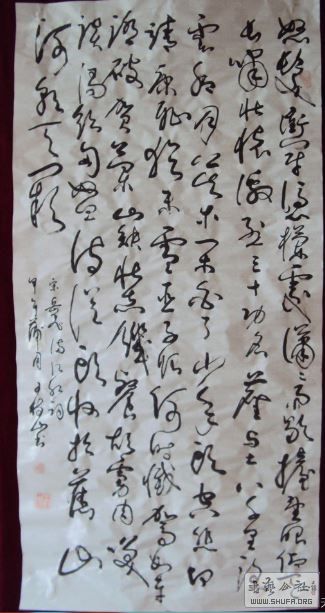 怒髮衝冠憑欄處瀟瀟雨歇擡望眼仰天
長嘯壯懷激烈三十功名塵與土八千里路
雲和月莫等閒白了少年頭空悲切
靖康恥猶未雪臣子恨何時滅駕長車
踏破賀蘭山缺壯志飢餐胡虜肉笑
談渴飲匈奴血待從頭收拾舊山
河朝天闕
宋岳飛滿江紅詞
甲午蒲月書
書藝公社
WWW.SHUFA.ORG